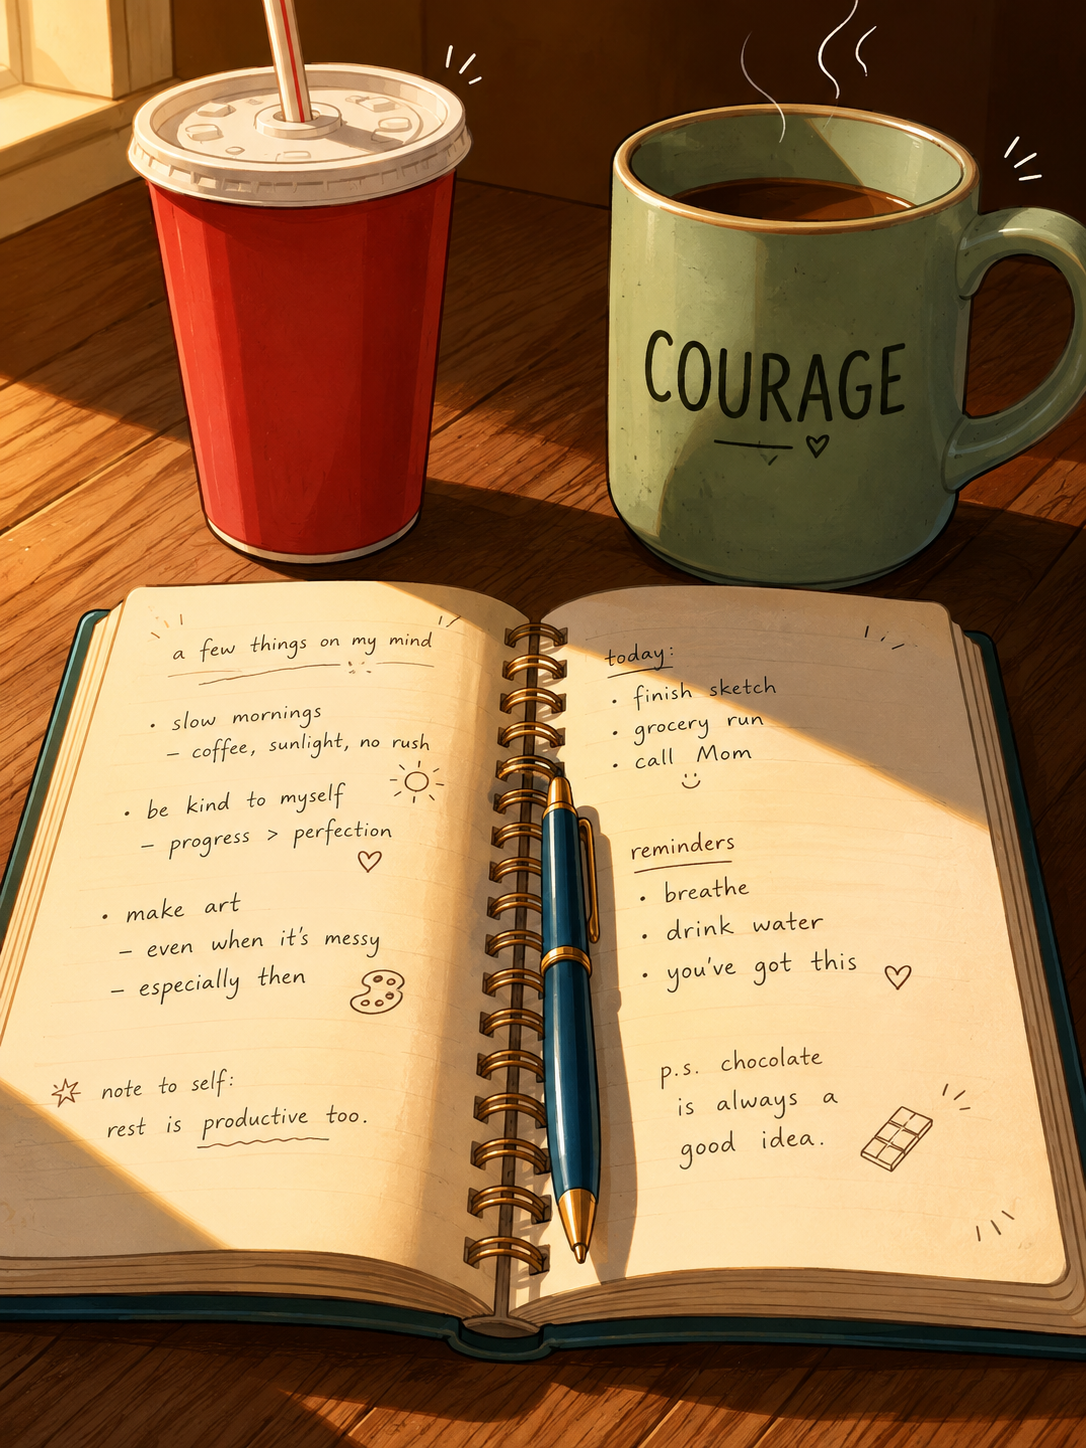 COURAGE
a few things on my mind
• slow mornings
– coffee, sunlight, no rush
• be kind to myself
– progress > perfection
• make art
– even when it's messy
– especially then
note to self:
rest is productive too.
today:
• finish sketch
• grocery run
• call Mom
reminders
• breathe
• drink water
• you've got this
p.s. chocolate
is always a
good idea.